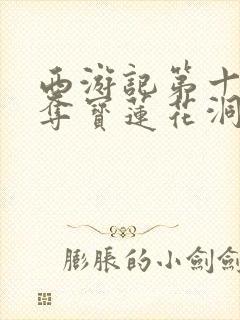 西游記第十
奪寶蓮花洞
膨脹的小劍劍